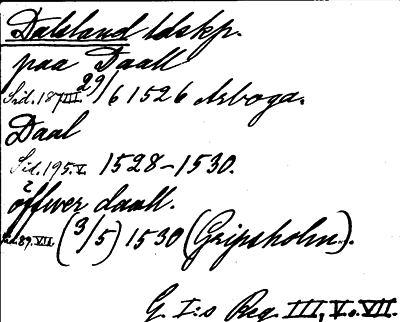 Dalsland ldskp.
paa Daall
Sid. 187 III. 29/6 1526 Arboga.
Daal
Sid. 195. V. 1528-1530.
öffwer daall.
Sid. 89. VII. (3/5) 1530 (Gripsholm).
G. I:s Reg. III, V. o. VII.